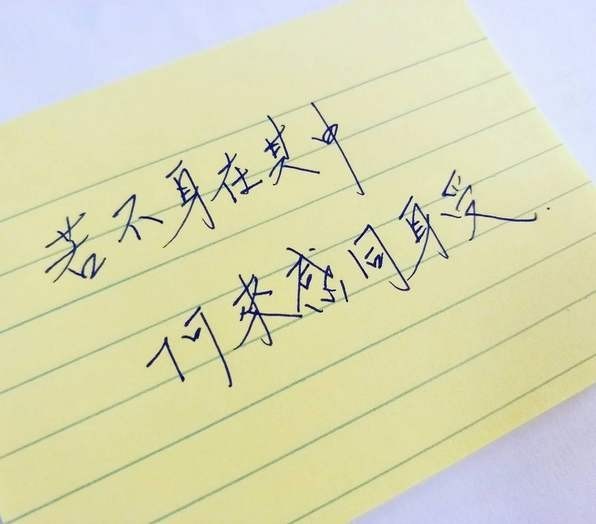 若不身在其中
何来感同身受.